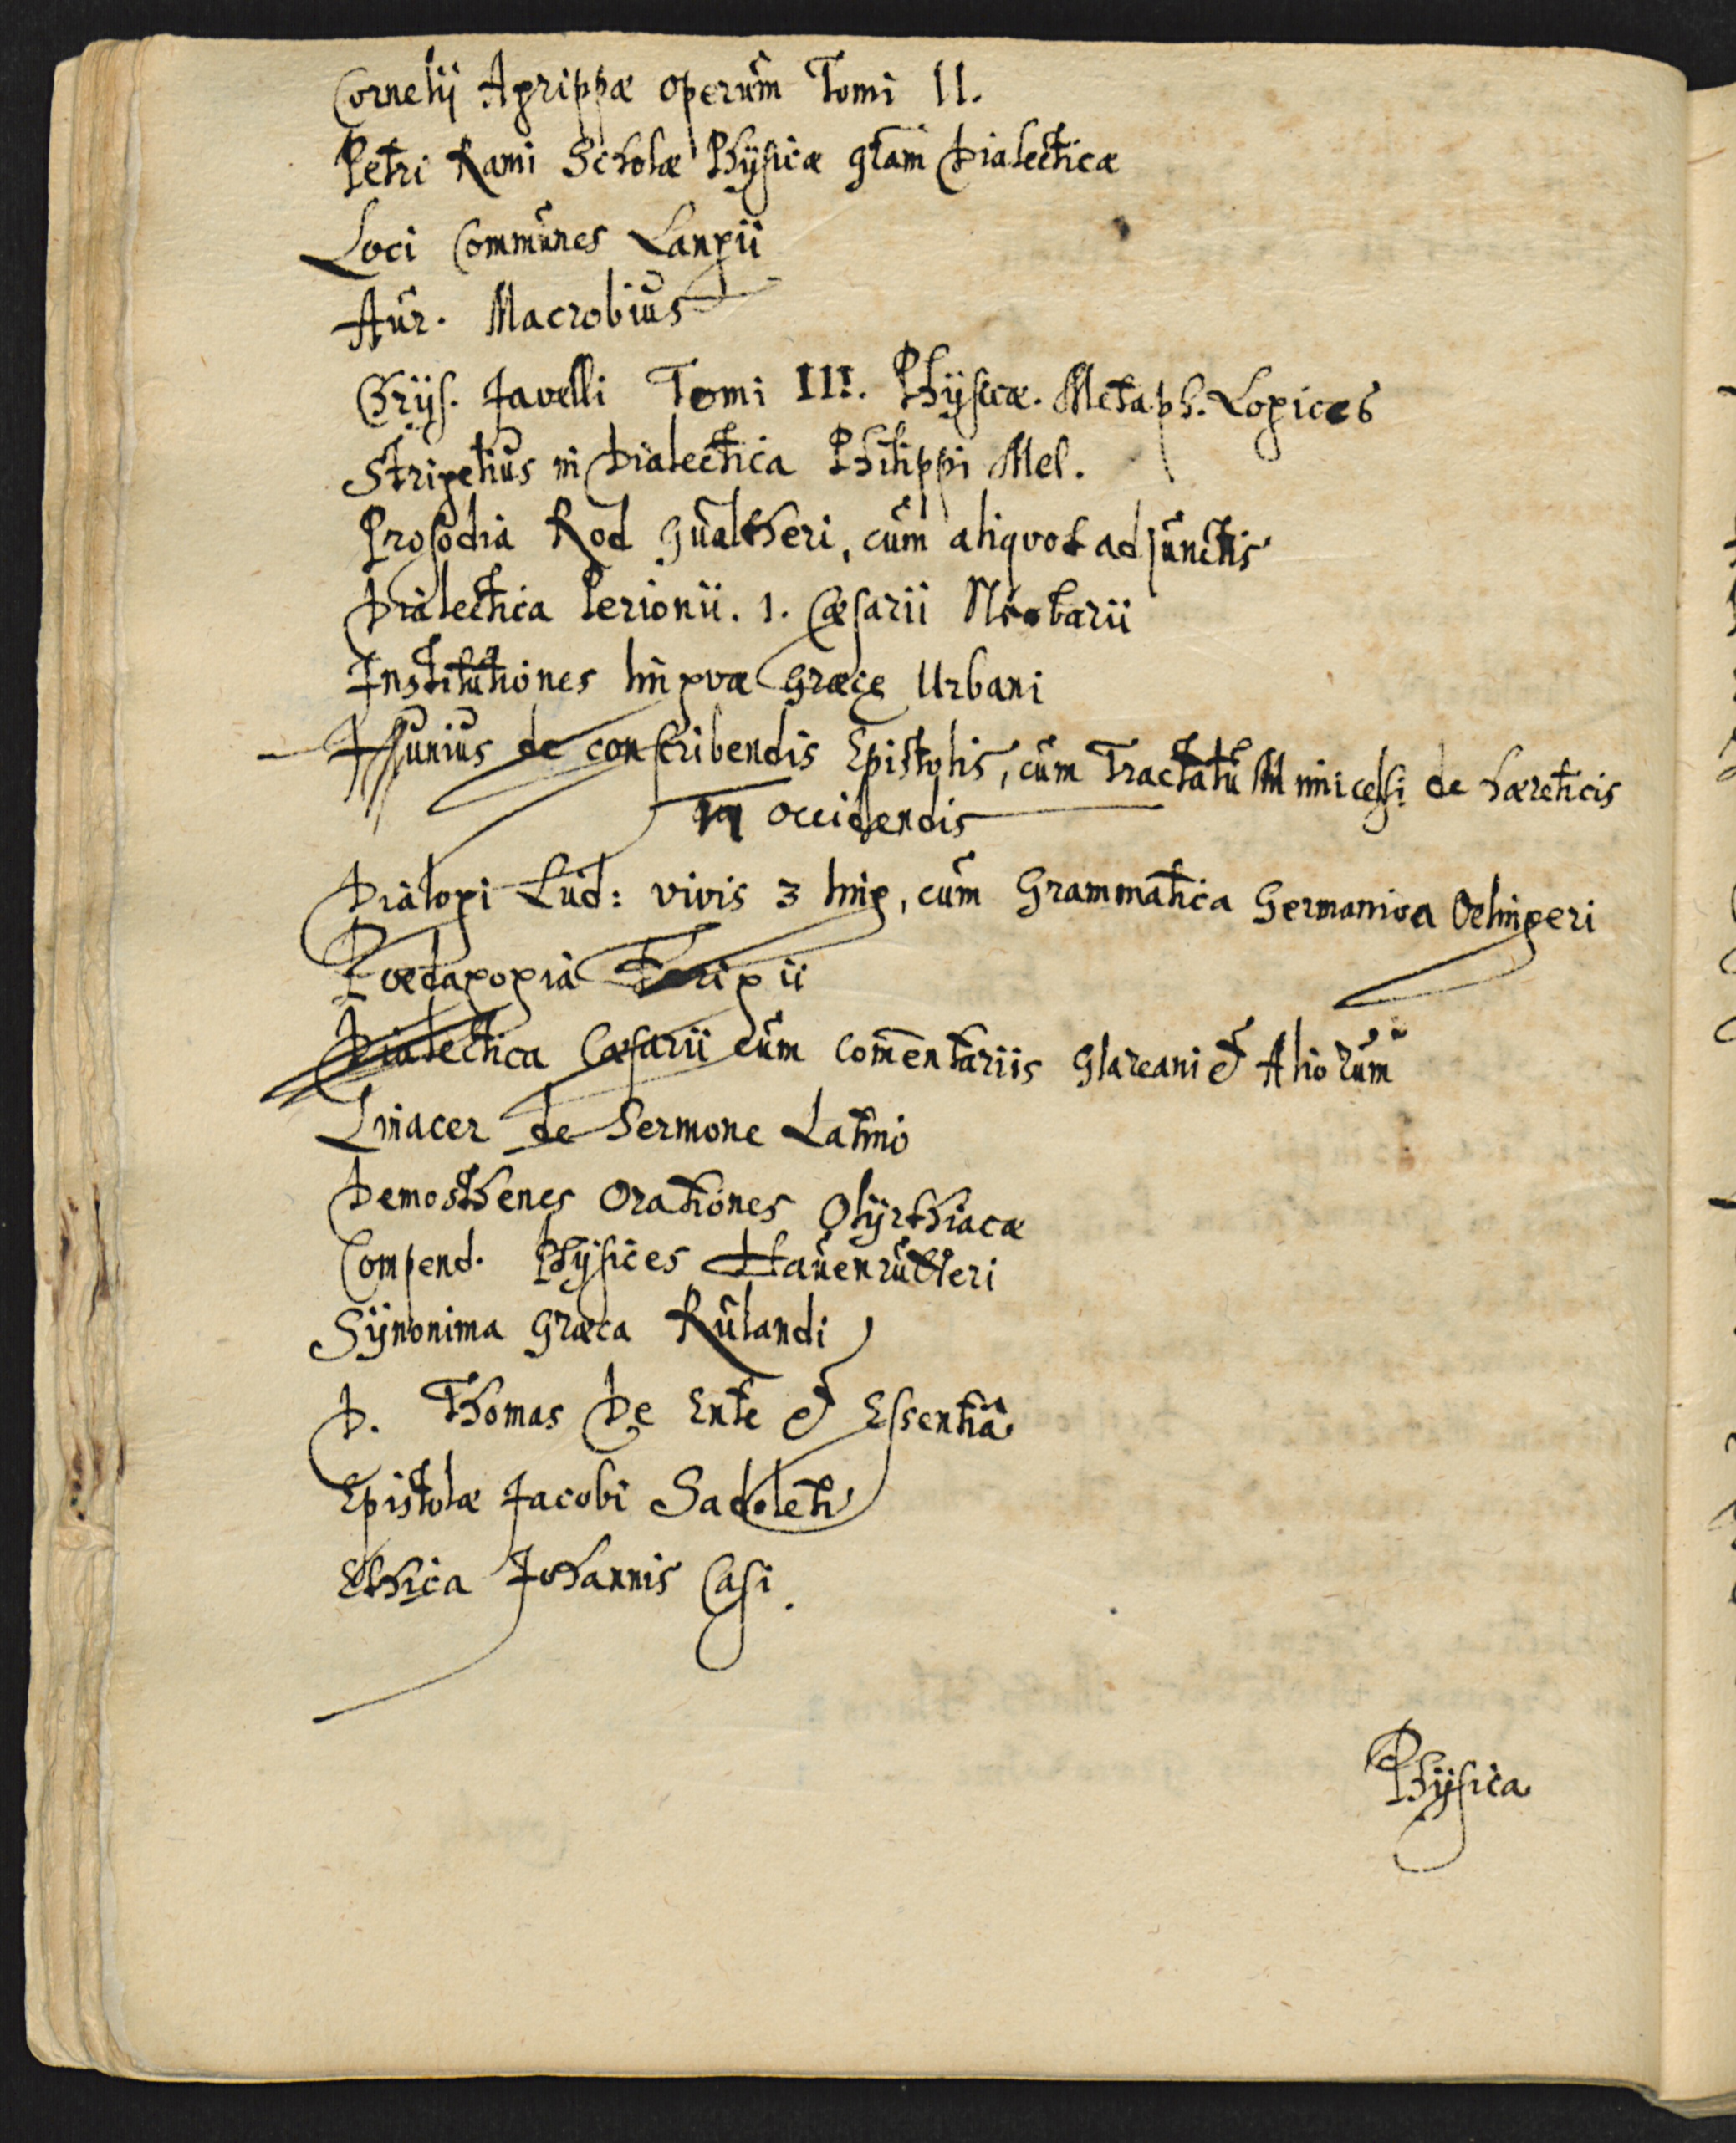 Cornelij Agrippæ Operum Tomi II.
Petri Rami Scholæ Physicæ Dialecticæ
Loci Communes Langii
Aur. Macrobius
Chrys. Javelli Tomi III. Physicæ. Metaph. Logices
Strigelius in Dialectica Philippi Mel.
Prosodia Rod Gualtheri, cum aliquot adjunctis
Dialectica Perionii. 1. Cæsarii
Institutiones linguæ Græcę Urbani
Junius de conscribendis Epistolis, cum Tractatu Minicelsi de hæreticis
occidendis
Dialogi Lud: vivis 3 ling, cum Grammatica Germanica Oelingeri
Pædagogia Frigii
Dialectica Cæsarii cum Com̄entariis Glareani & Aliorum
Linacer de Sermone Latino
Demosthenes Orationes Olyrthiacæ
Compend. Physices Hauenrutteri
Synonima Græca Rulandi
D. Thomas De Ente & Essentia
Epistolæ Jacobi Sadoleti
Ethica Johannis Casi.
Physica